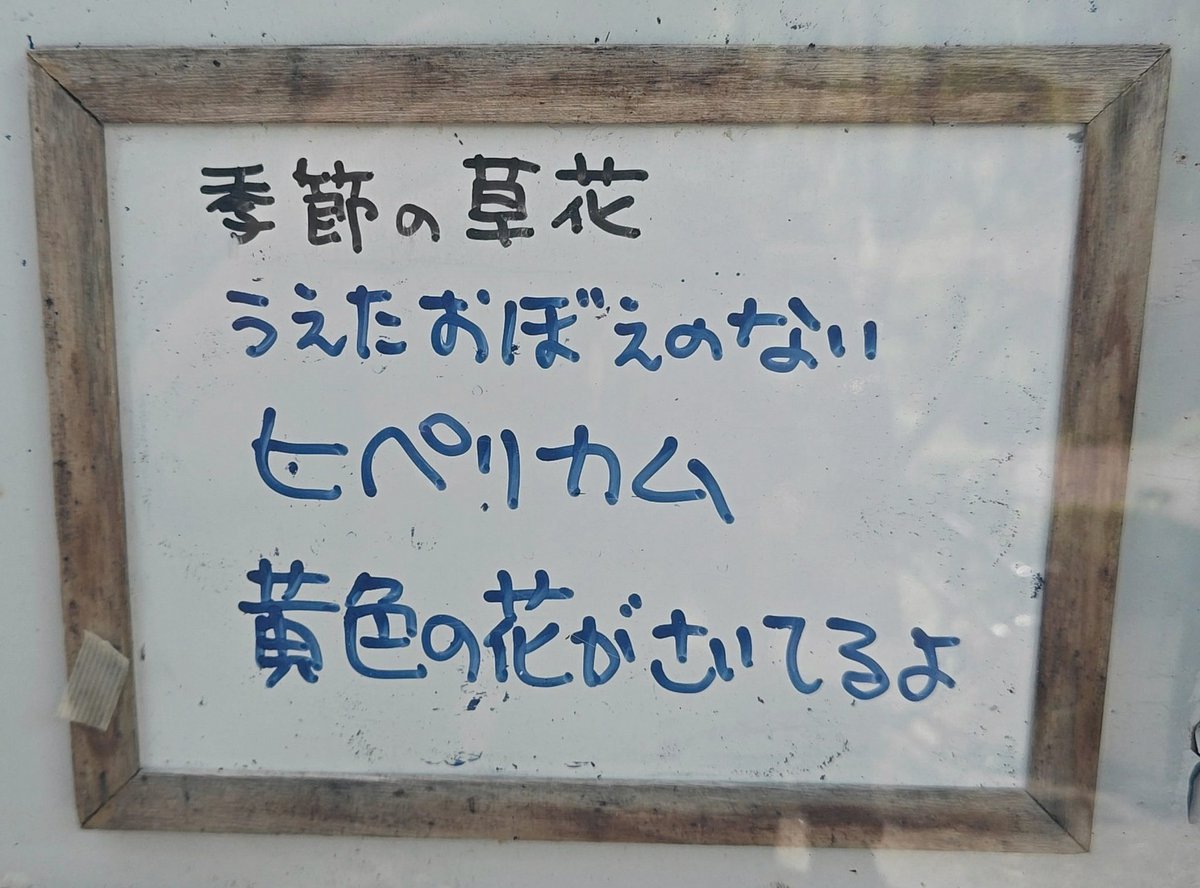 季節の草花
うえたおぼえのない
ヒペリカム
黄色の花がさいてるよ